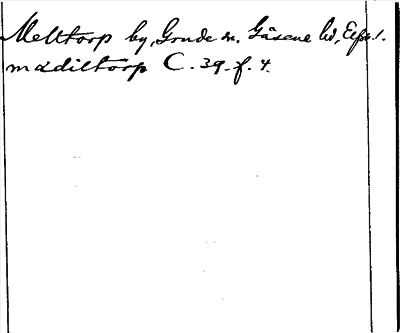 Melltorp by, Grude sn. Gäsene hd, Elfsb. l.
mædiltorp C. 39. f. 4.